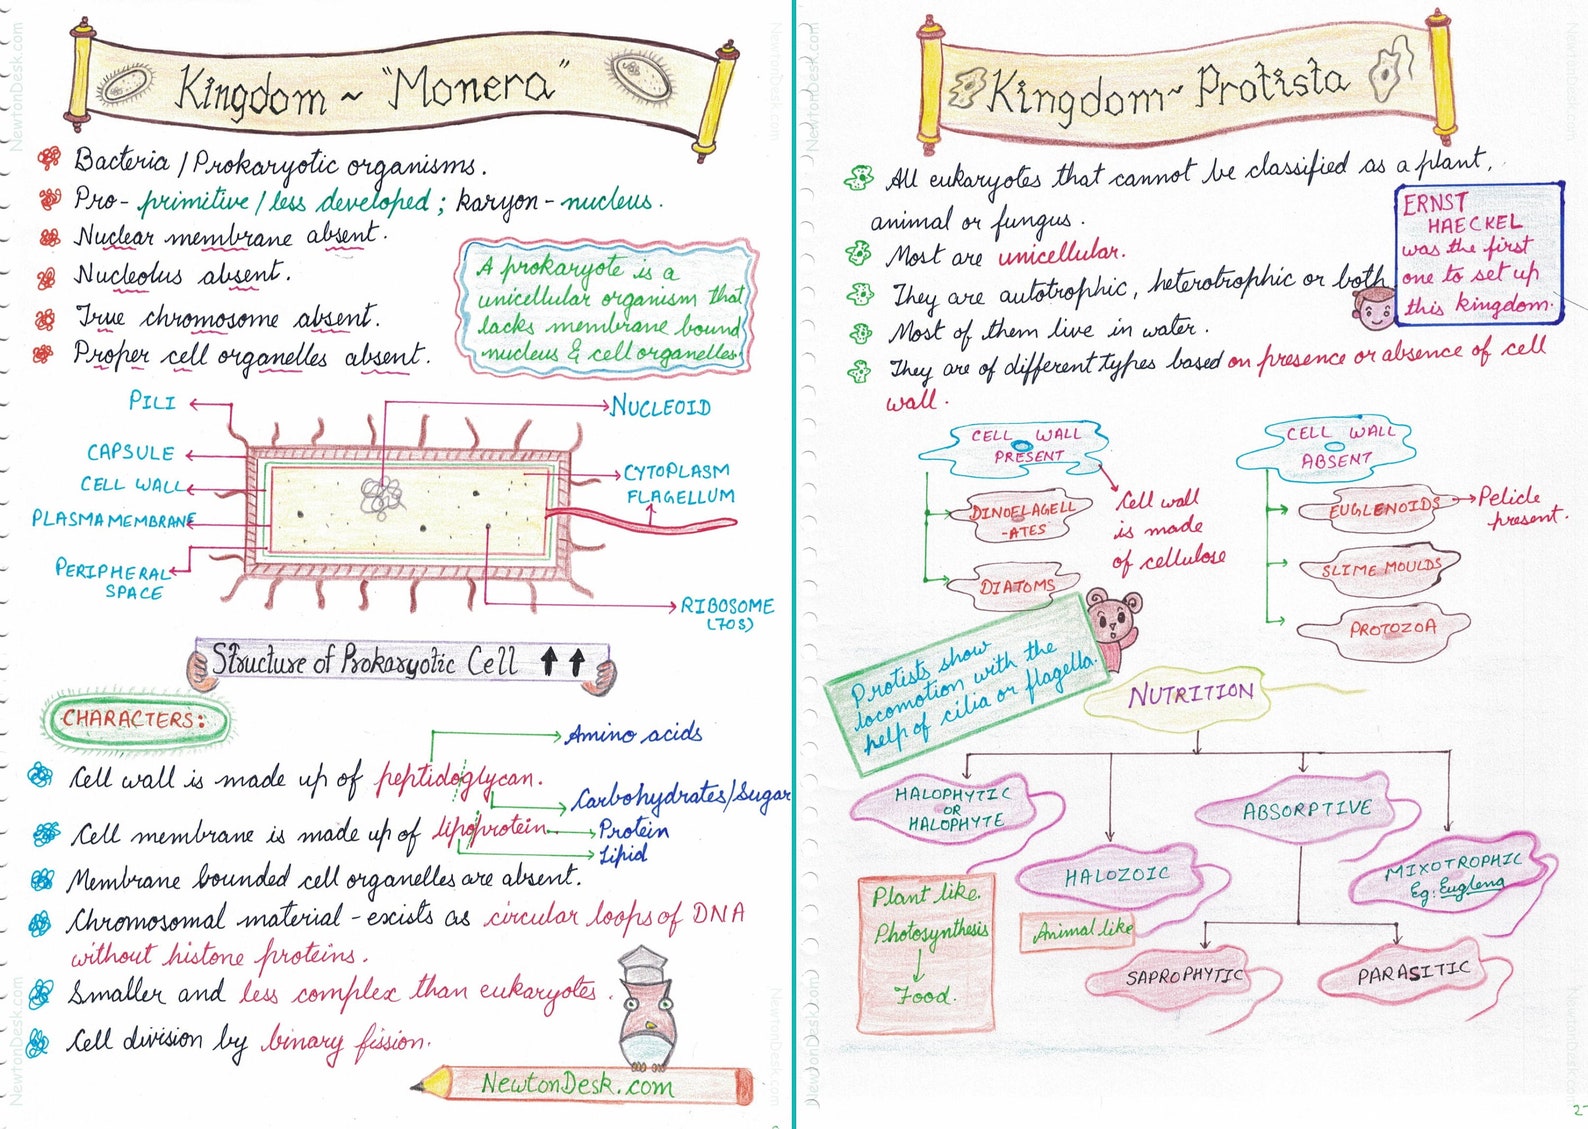 Kingdom ~ "Monera"
Bacteria / Prokaryotic organisms.
Pro- primitive / less developed ; karyon - nucleus.
Nuclear membrane absent.
Nucleolus absent.
True chromosome absent.
Proper cell organelles absent.
A prokaryote is a
unicellular organism that
lacks membrane bound
nucleus & cell organelles
PILI
NUCLEOID
CAPSULE
CELL WALL
PLASMA MEMBRANE
PERIPHERAL
SPACE
CYTOPLASM
FLAGELLUM
RIBOSOME
(70S)
Structure of Prokaryotic Cell
CHARACTERS:
Cell wall is made up of peptidoglycan.
Amino acids
Carbohydrates/Sugar
Cell membrane is made up of lipoprotein.
Protein
Lipid
Membrane bounded cell organelles are absent.
Chromosomal material - exists as circular loops of DNA
without histone proteins.
Smaller and less complex than eukaryotes.
Cell division by binary fission.
NEWTONDESK.com
NewtonDesk.com
NewtonDesk.com
NewtonDesk.com
NewtonDesk.com
Kingdom~ Protista
All eukaryotes that cannot be classified as a plant,
animal or fungus.
Most are unicellular.
They are autotrophic, heterotrophic or both
Most of them live in water.
They are of different types based on presence or absence of cell
wall.
ERNST
HAECKEL
was the first
one to set up
this kingdom.
CELL WALL
PRESENT
DINOELAGELL
-ATES
DIATOMS
Cell wall
is made
of cellulose
CELL WALL
ABSENT
EUGLENOIDS
Pelicle
present.
SLIME MOULDS
PROTOZOA
Protists show
locomotion with the
help of cilia or flagella.
NUTRITION
HALOPHYTIC
OR
HALOPHYTE
HALOZOIC
ABSORPTIVE
MIXOTROPHIC
Eg: Euglena
Plant like.
Photosynthesis
Food.
Animal like
SAPROPHYTIC
PARASITIC
NewtonDesk.com
NewtonDesk.com
NewtonDesk.com
NewtonDesk.com